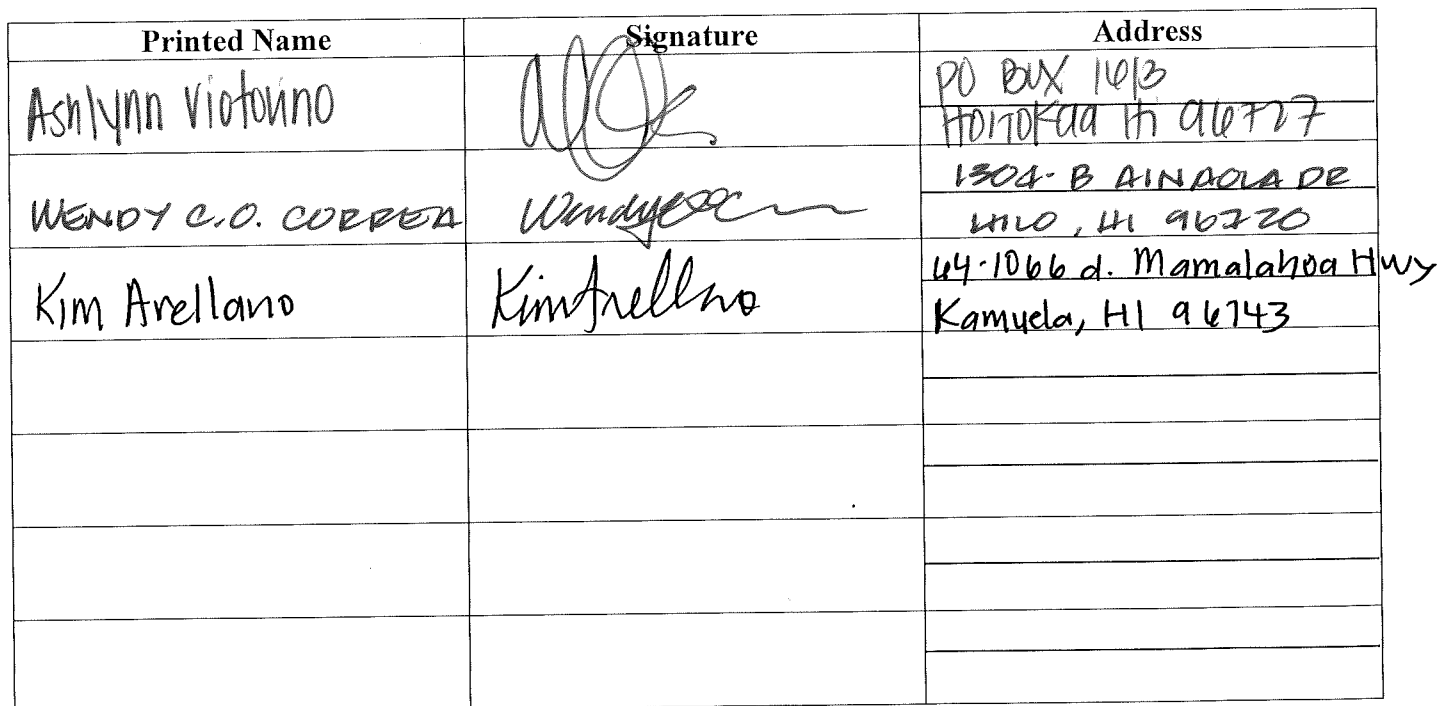 Printed Name Signature Address
Ashlynn Victorino PO BOX 1613
Honokaa HI 96727
WENDY C.O. CORREA 1304-B AINAOLA DR
HILO, HI 96720
Kim Arellano Kim Arellano 64-1066 d. Mamalahoa Hwy
Kamuela, HI 96743